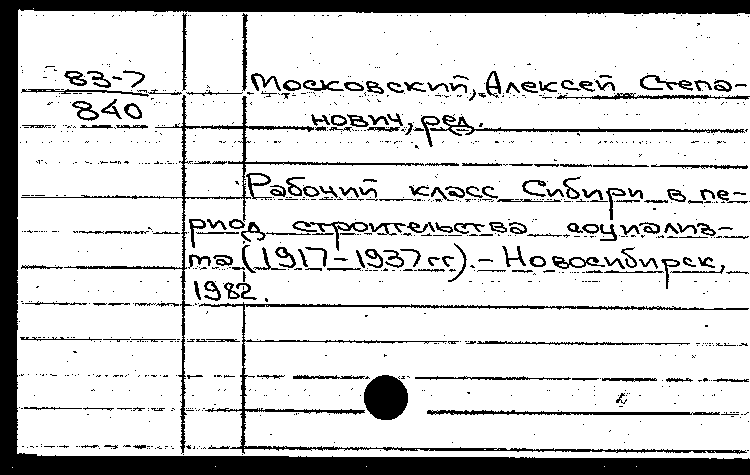 83-7
840
Московский, Алексей Степа-
нович, ред.
Рабочий класс Сибири в пе-
риод строительства социализ-
ма (1917-1937 гг). - Новосибирск,
1982.